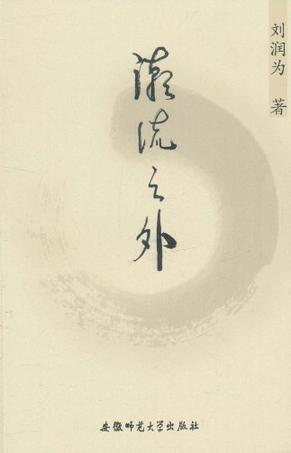 潮流之外
刘润为 著
安徽师范大学出版社